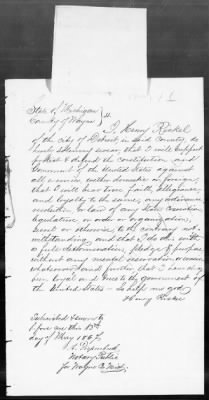 State of Michigan
County of Wayne } ss
I, Henry Riekel
of the city of Detroit, in said County, do
hereby solemnly swear, that I will support
protect & defend the Constitution and
Government of the United States against
all enemies, whether domestic or foreign,
that I will bear true faith, allegiance,
and loyalty to the same, any ordinance,
resolution or law of any State Convention
Legislature, or order or organization,
secret or otherwise to the contrary not-
withstanding, and that I do this with
a full determination, pledge & purpose
without any mental reservation or evasion
whatsoever, and further that I have always
been loyal and true to the government of
the United States — So help me god
Henry
Subscribed & sworn to
before me this 13th
day of May 186
Notary Public
for Wayne Co Mich